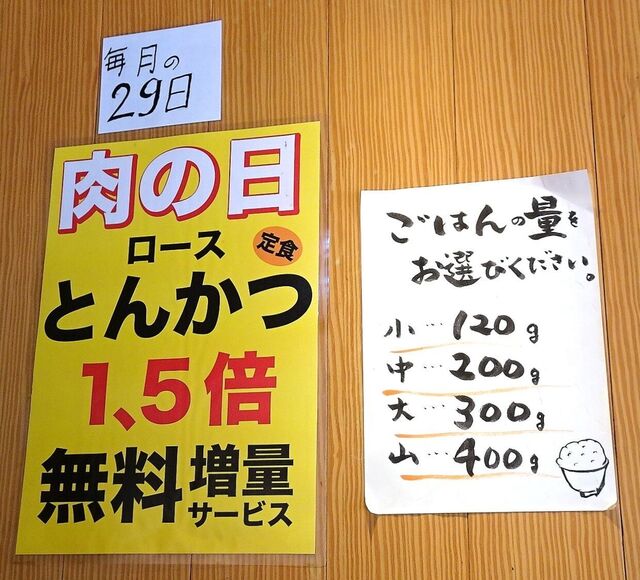 毎月の
29日
肉の日
ロース
定食
とんかつ
1、5倍
無料増量
サービス
ごはんの量を
お選びください。
小…120g
中…200g
大…300g
山…400g